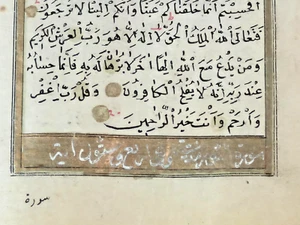 افحسبتم انما خلقناكم عبثا وانكم الينا لا ترجعون
فتعالى الله الملك الحق لا اله الا هو رب العرش الكريم
ومن يدع مع الله الها اخر لا برهان له به فانما حسابه
عند ربه انه لا يفلح الكافرون وقل رب اغفر
وارحم وانت خير الراحمين
سورة النور مدنية وهي اربع وستون اية
سورة